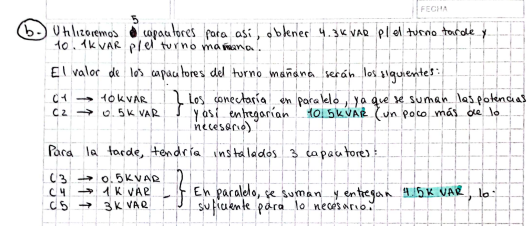 FECHA
b- Utilizaremos 5 capacitores para así, obtener 4.3K VAR p/el turno tarde y
10.1K VAR p/el turno mañana.
El valor de los capacitores del turno mañana serán los siguientes:
C1 → 10KVAR } Los conectaría en paralelo, ya que se suman las potencias
C2 → 0.5K VAR y así entregarían 10.5KVAR (un poco más de lo
necesario)
Para la tarde, tendría instalados 3 capacitores:
C3 → 0.5KVAR
C4 → 1K VAR } En paralelo, se suman y entregan 4.5K VAR, lo
C5 → 3K VAR suficiente para lo necesario.